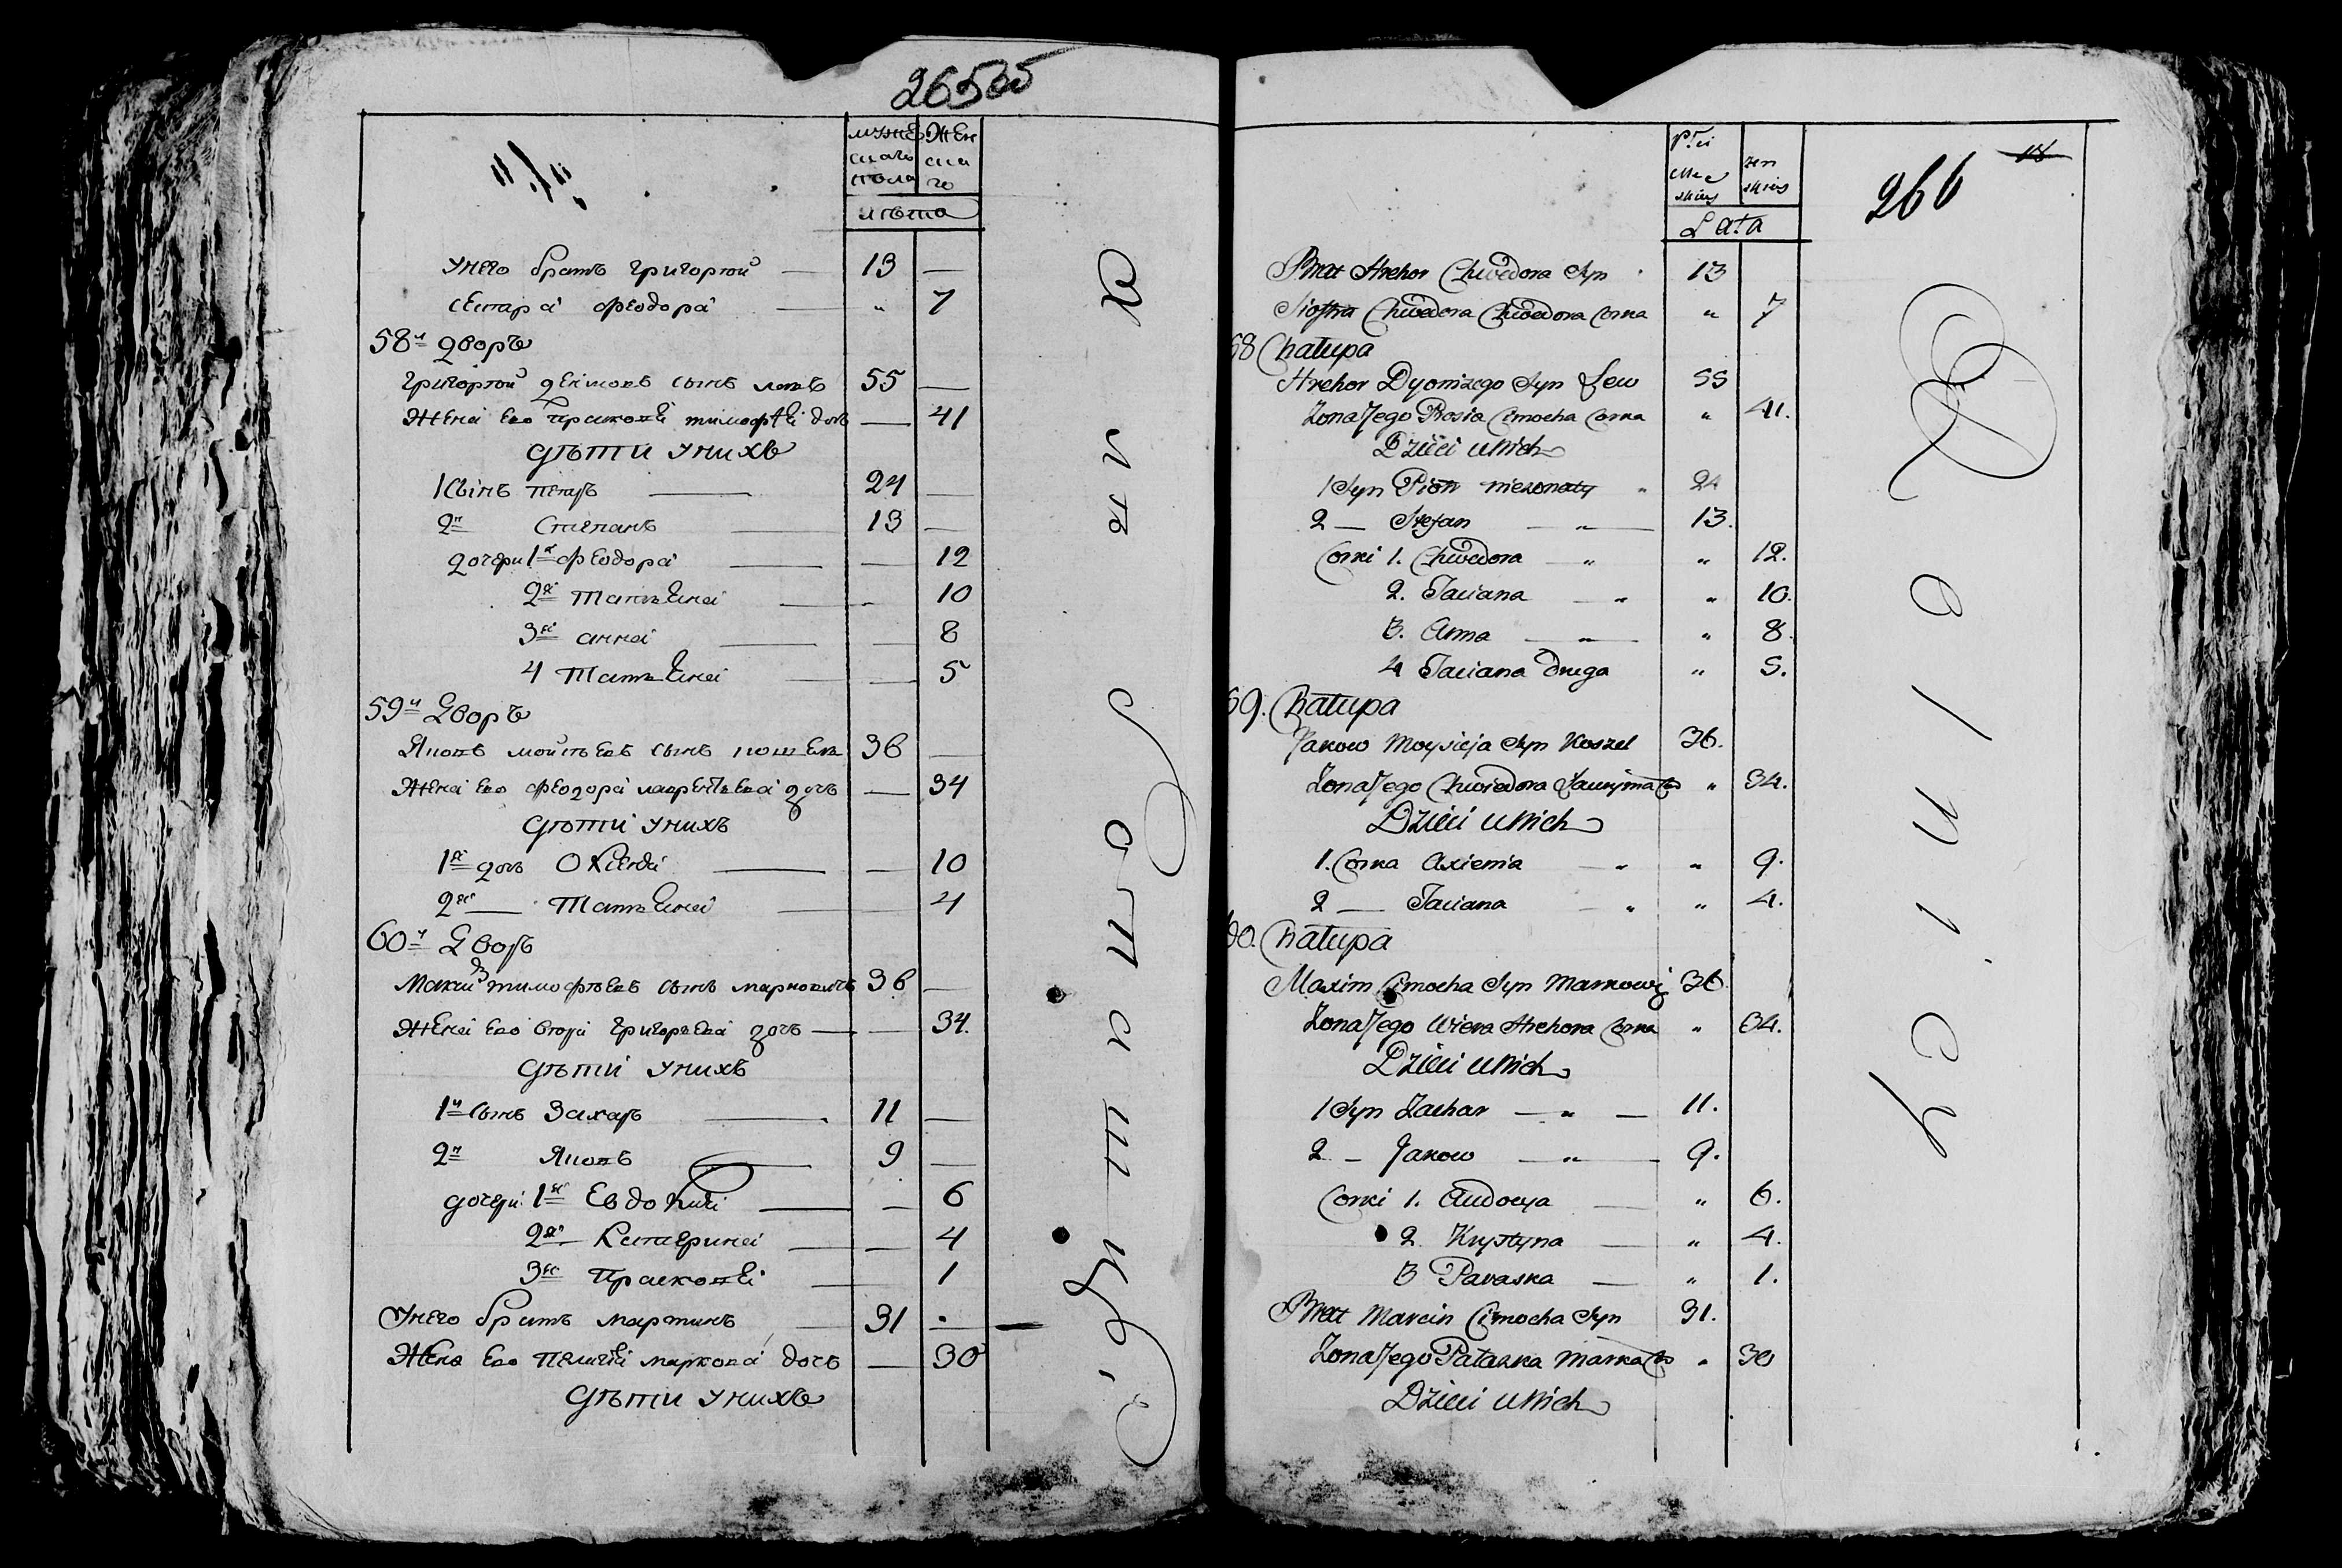 265 об
мужескаго пола
женскаго
лѣта
у него братъ григорій — 13 —
сестра феодора — " 7
58й дворъ
григорій денисовъ сынъ левъ 55 —
жена его прасковія тимофѣева дочь — 41
дѣти у нихъ
1 сынъ петръ — 24 —
2й Степанъ — 13 —
дочери 1я феодора — — 12
2я татьяна — — 10
3я анна — — 8
4 татьяна — — 5
59й дворъ
Яковъ мойсѣевъ сынъ кошель 36 —
жена его феодора лаврентьева дочь — 34
дѣти у нихъ
1я дочь Оксенія — — 10
2я — татьяна — — 4
60й дворъ
Максимъ тимофѣевъ сынъ марковичъ 36 —
жена его вера григорьева дочь — — 34.
дѣти у нихъ
1й сынъ Захаръ — 11 —
2й Яковъ — 9 —
дочери 1я Евдокия — — 6
2я Катерина — — 4
3я прасковія — — 1
у него братъ мартинъ — 31 .
жена его пелагія маркова дочь — 30
дѣти у нихъ
266
18
Płci męskiey
żenskiey
Lata
Brat Hrehor Chwedora Syn 13
Siostra Chwedora Chwedora Corka " 7
58 Chałupa
Hrehor Dyonizego Syn Lew 55
Zona Jego Prosia Cimocha Corka " 41.
Dzieci u Nich
1 Syn Piotr niezonaty " 24
2 — Stefan — " — 13.
Corki 1. Chwedora — " " 12.
2. Taciana — " " 10.
3. Anna — " — " 8.
4 Taciana druga " 5.
59. Chałupa
Jakow Moysieja Syn Koszel 36.
Zona Jego Chwiedora Ławryna Co " 34.
Dzieci u Nich
1. Corka Axienia — " " 9.
2 — Taciana — " " 4.
60. Chałupa
Maxim Cimocha Syn Markowicz 36.
Zona Jego Wiera Hrehora Corka " 34.
Dzieci u Nich
1 Syn Zachar — " — 11.
2 — Jakow — " — 9.
Corki 1. Audocya — " 6.
2. Krystyna — " 4.
3 Paraska — " 1.
Brat Marcin Cimocha Syn 31.
Zona Jego Pałaszka Marka Co " 30
Dzieci u Nich